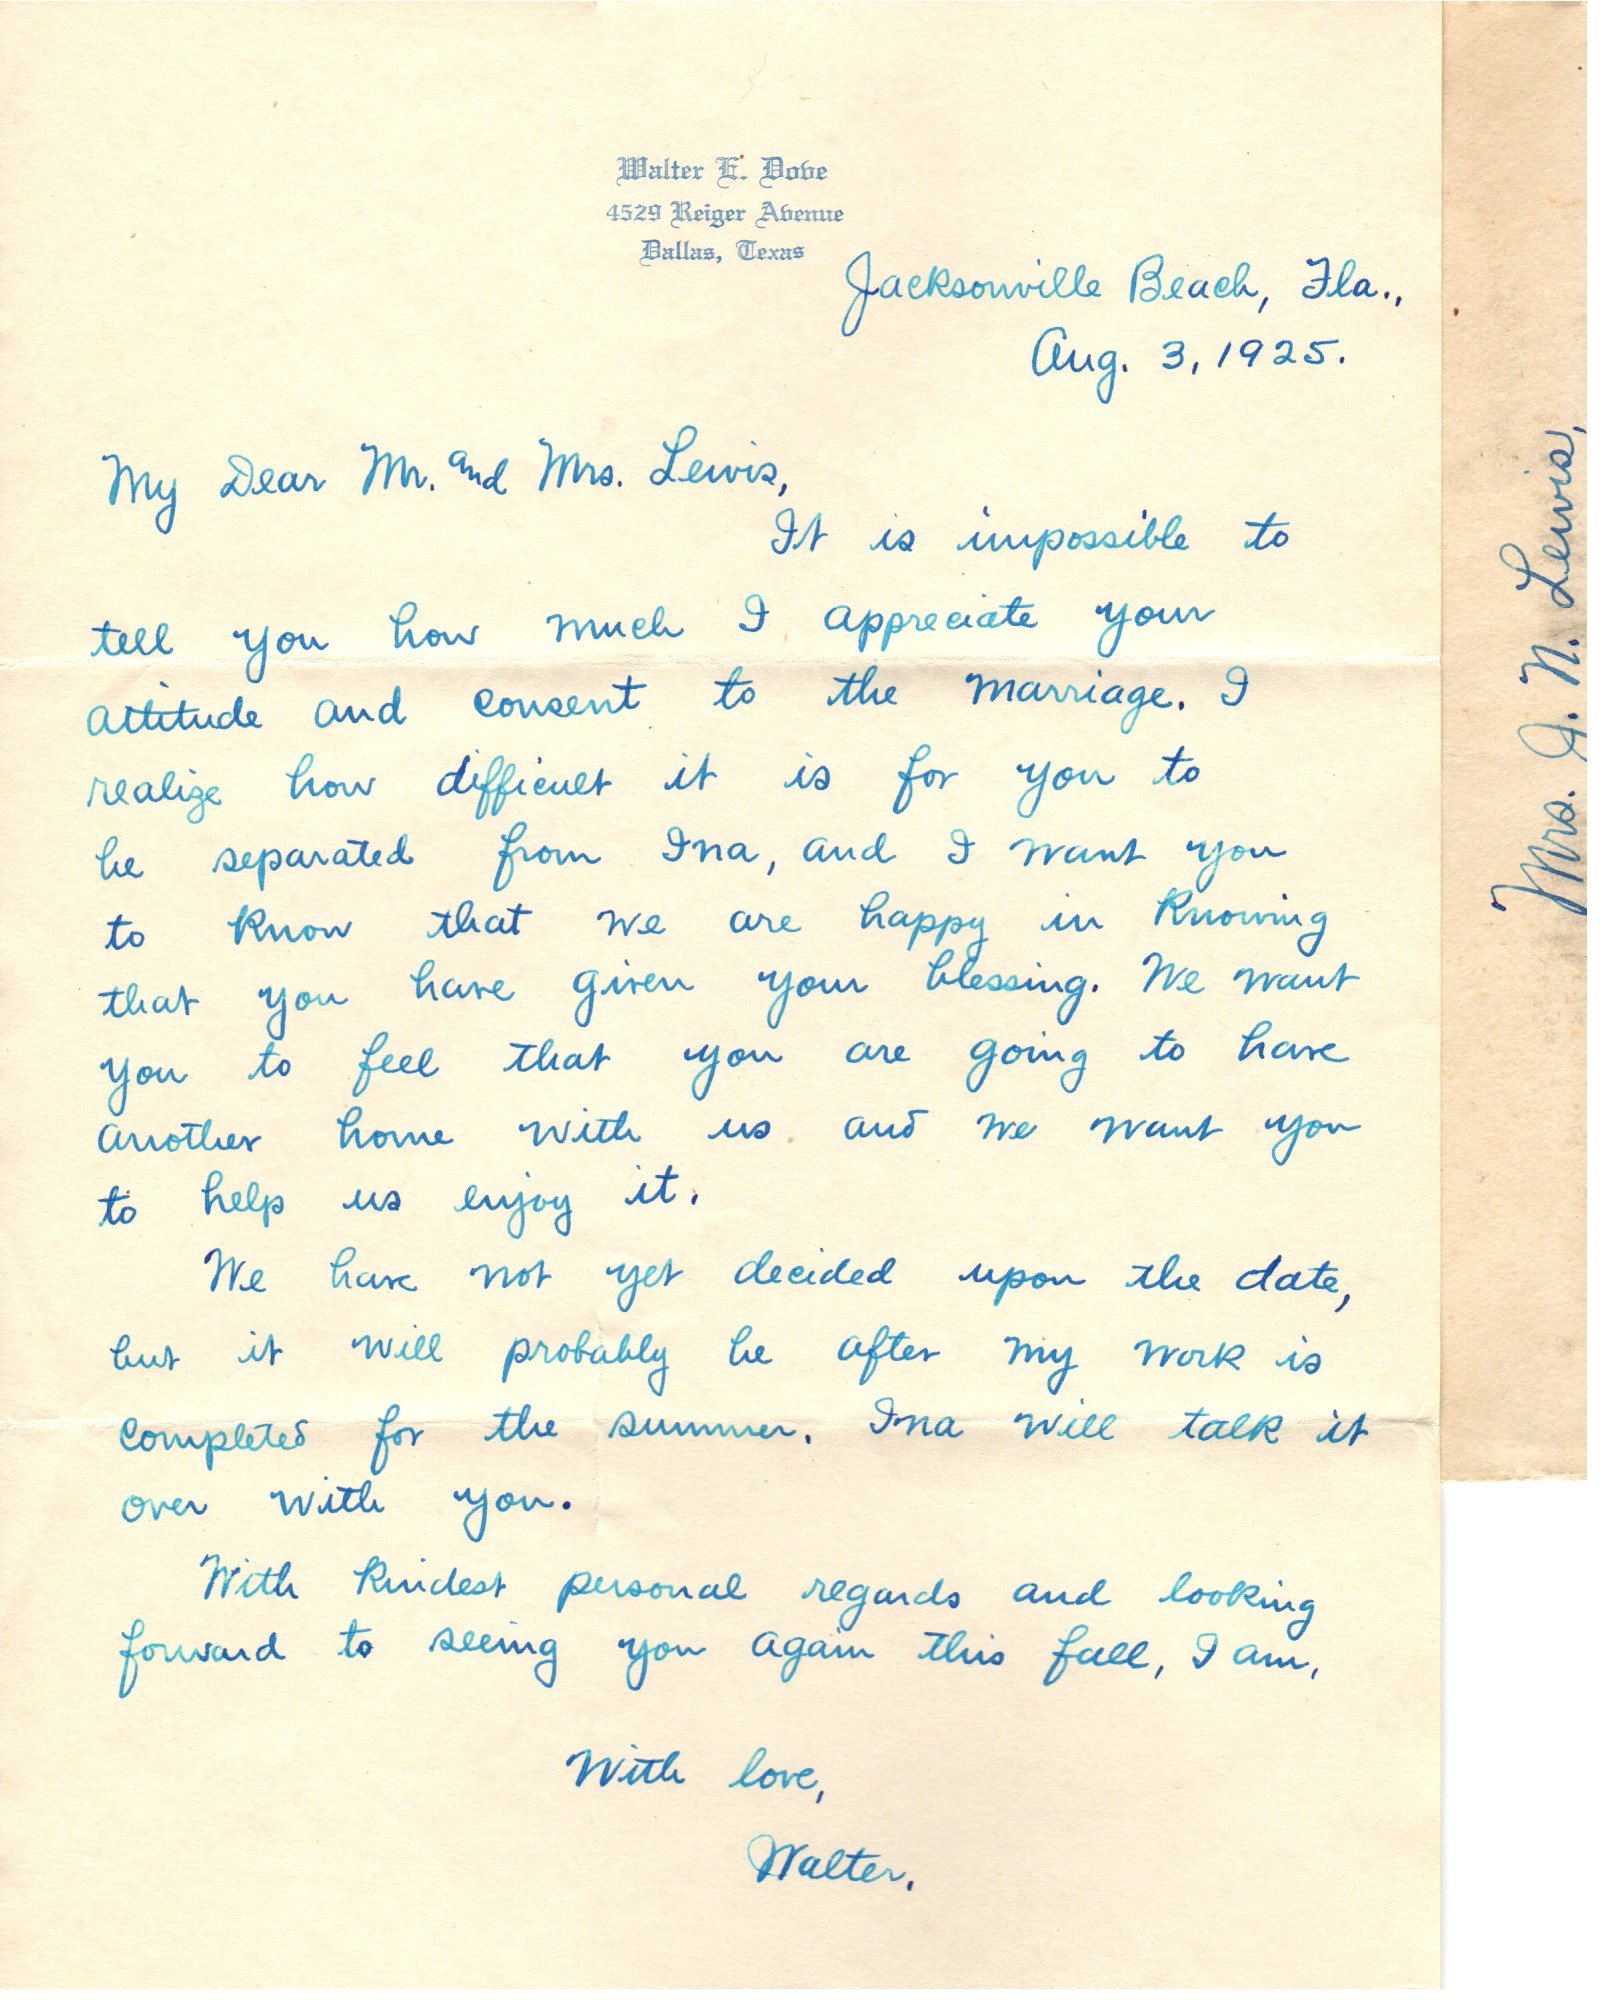 Walter E. Dove
4529 Reiger Avenue
Dallas, Texas
Jacksonville Beach, Fla.,
Aug. 3, 1925.
My Dear Mr. and Mrs. Lewis,
It is impossible to
tell you how much I appreciate your
attitude and consent to the marriage. I
realize how difficult it is for you to
be separated from Ina, and I want you
to know that we are happy in knowing
that you have given your blessing. We want
you to feel that you are going to have
another home with us and we want you
to help us enjoy it.
We have not yet decided upon the date,
but it will probably be after my work is
completed for the summer. Ina will talk it
over with you.
With kindest personal regards and looking
forward to seeing you again this fall, I am,
With love,
Walter.
Mrs. J. N. Lewis,